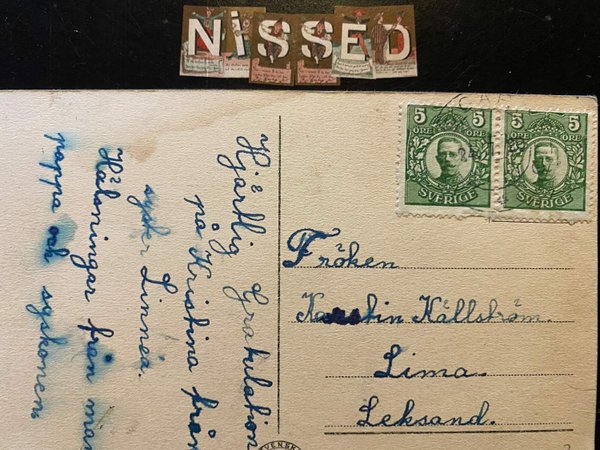 NISSED
5 5
ÖRE ÖRE
SVERIGE
5 5
ÖRE ÖRE
SVERIGE
Hjärtlig Gratulation
på Kristina från
syster Linnéa.
Hälsningar från mam
pappa och syskonen
Fröken
Källström.
Lima.
Leksand.
SVENSK